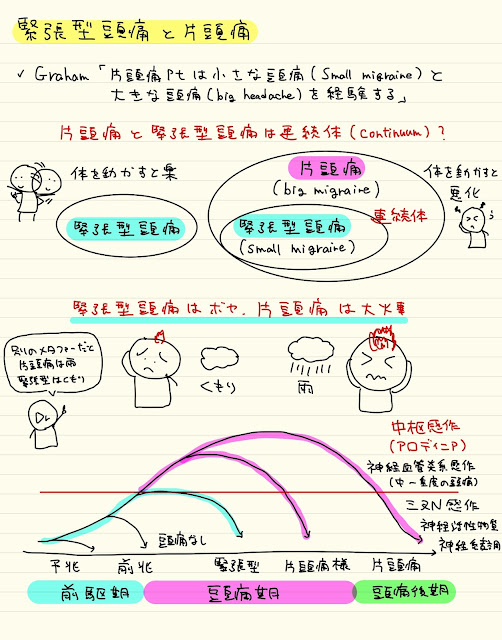 緊張型頭痛と片頭痛
✓ Graham「片頭痛Ptは小さな頭痛(Small migraine)と
大きな頭痛(big headache)を経験する」
片頭痛と緊張型頭痛は連続体(continuum)?
体を動かすと楽
緊張型頭痛
片頭痛
(big migraine)
連続体
緊張型頭痛
(small migraine)
体を動かすと
悪化
緊張型頭痛はボヤ、片頭痛は大火事
別のメタファーだと
片頭痛は雨
緊張型はくもり
Dr
くもり
雨
中枢感作
(アロディニア)
神経血管系感作
(中~重度の頭痛)
三叉N感作
神経活性物質
予兆
前兆
頭痛なし
緊張型
片頭痛様
片頭痛
前駆期
頭痛期
頭痛後期